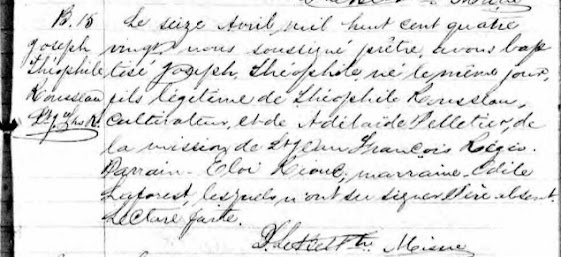 B. 15
Joseph
Théophile
Rousseau
Le seize Avril, mil huit cent quatre
vingt nous soussigné prêtre, avons bap
tisé Joseph, Théophile, né le même jour,
fils légitime de Théophile Rousseau,
cultivateur, et de Adélaïde Pelletier, de
la mission de St Jean François Régis.
Parrain Eloi Rioux, marraine Odile
Laforest, lesquels n'ont su signer. Père absent.
Lecture faite.
Ptre Miss